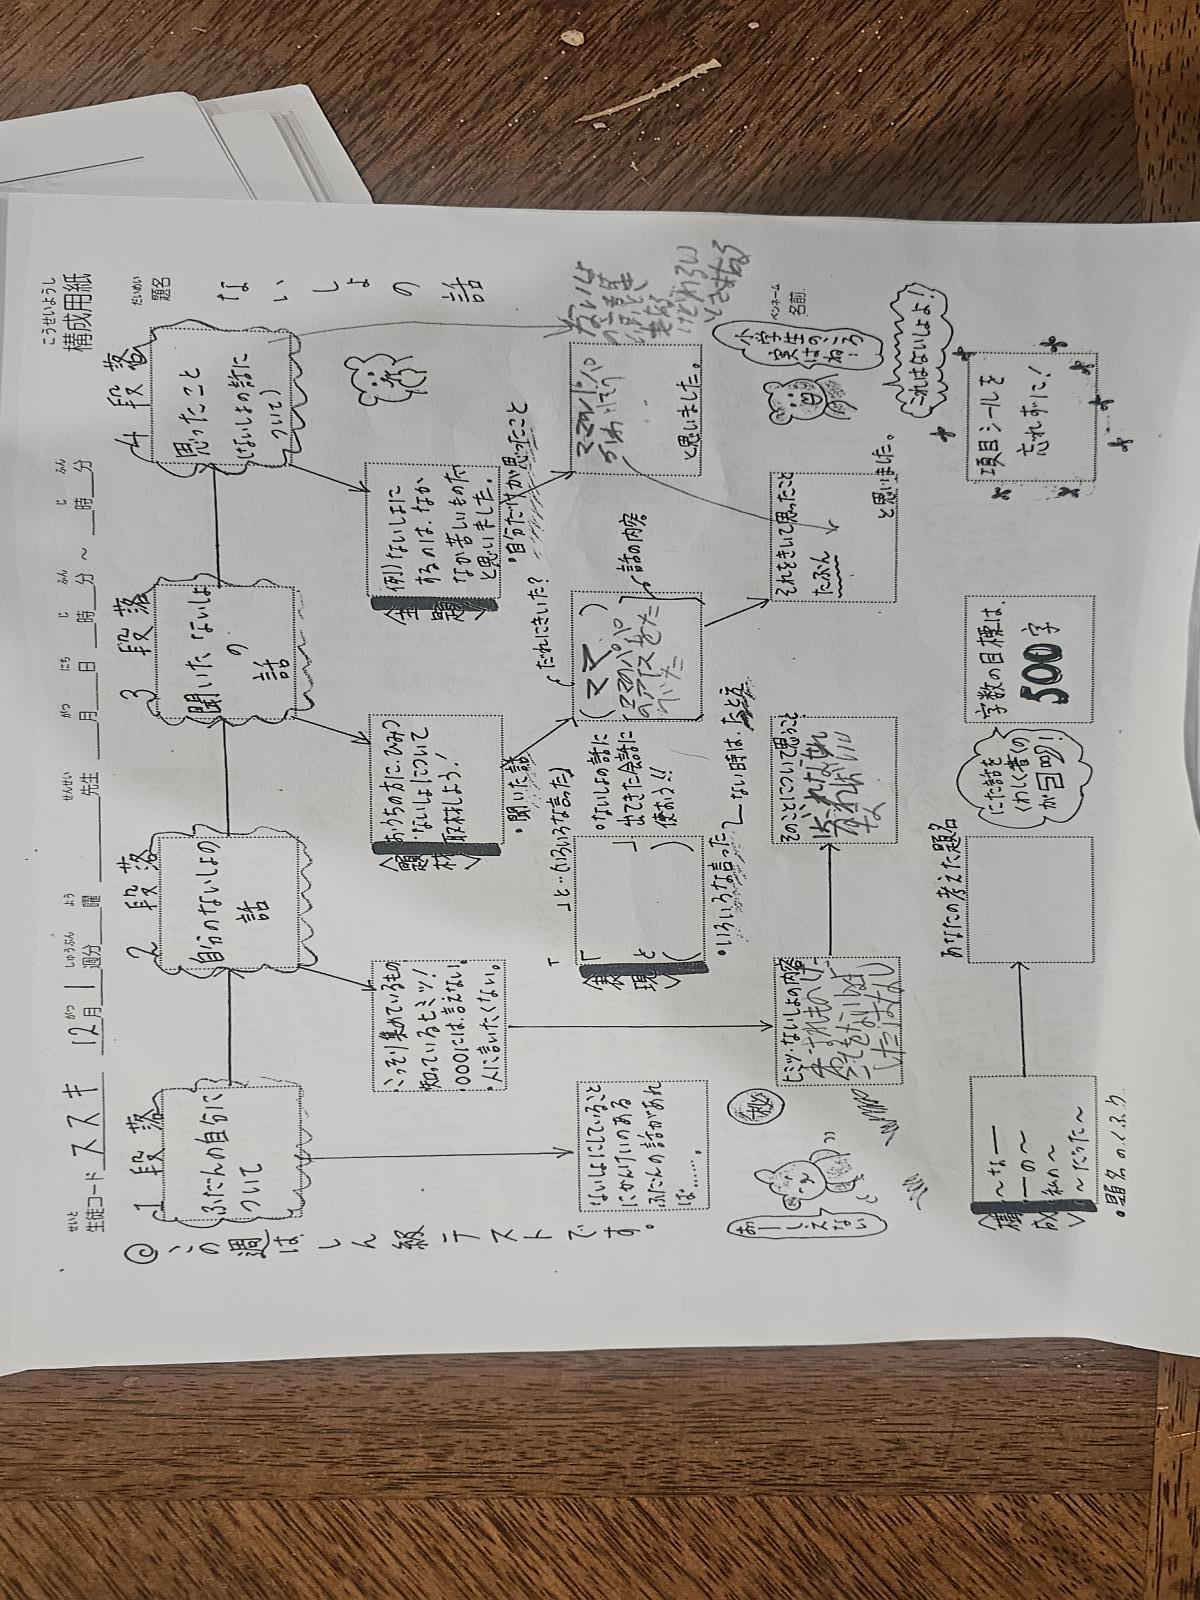 こうせいようし
構成用紙
だいめい
題名
ないしょの話
せいと
生徒コード ススキ 12月 1週分 曜 先生 月 日 時 分 ～ 時 分
がつ しゅうぶん よう せんせい がつ にち じ ふん じ ふん
◎この週は、しん級テストです。
1段落
ふだんの自分に
ついて
ないしょにしていること
にかんけいのある
ふだんの話があれ
ば……。
2段落
自分のないしょの
話
こっそり集めているもの
知っているヒミツ！
○○○には、言えない。
人に言いたくない。
ヒミツ・ないしょの内容
そのことについて思うこと
3段落
聞いた、ないしょ
の
話
〈題材〉
おうちの方に、ひみつ
・ないしょについて
取材しよう！
・聞いた話
だれにきいた？
（ママ）
話の内容
それをきいて思ったこと
たぶん
と思いました。
4段落
思ったこと
（ないしょの話に
ついて）
〈主題〉
（例）ないしょに
するのは、なか
なか苦しいものだ
と思いました。
・自分だけが思ったこと
と思いました。
〈表現〉
「
」と…（いろいろな言った）
・ないしょの話に
出てきた会話に
使おう！！
・いろいろな言った
～ない時は、たとえ
おーしえない
秘
ペンネーム
名前
小学生の
実はのころ
はね…
これはないしょよ！
〈構成〉
～な―
―の～
私の～
～だった～
・題名のくふう
あなたの考えた題名
にた話を
くわしく書くの
が目的！
字数の目標は、
500字
項目シールを
忘れずに！